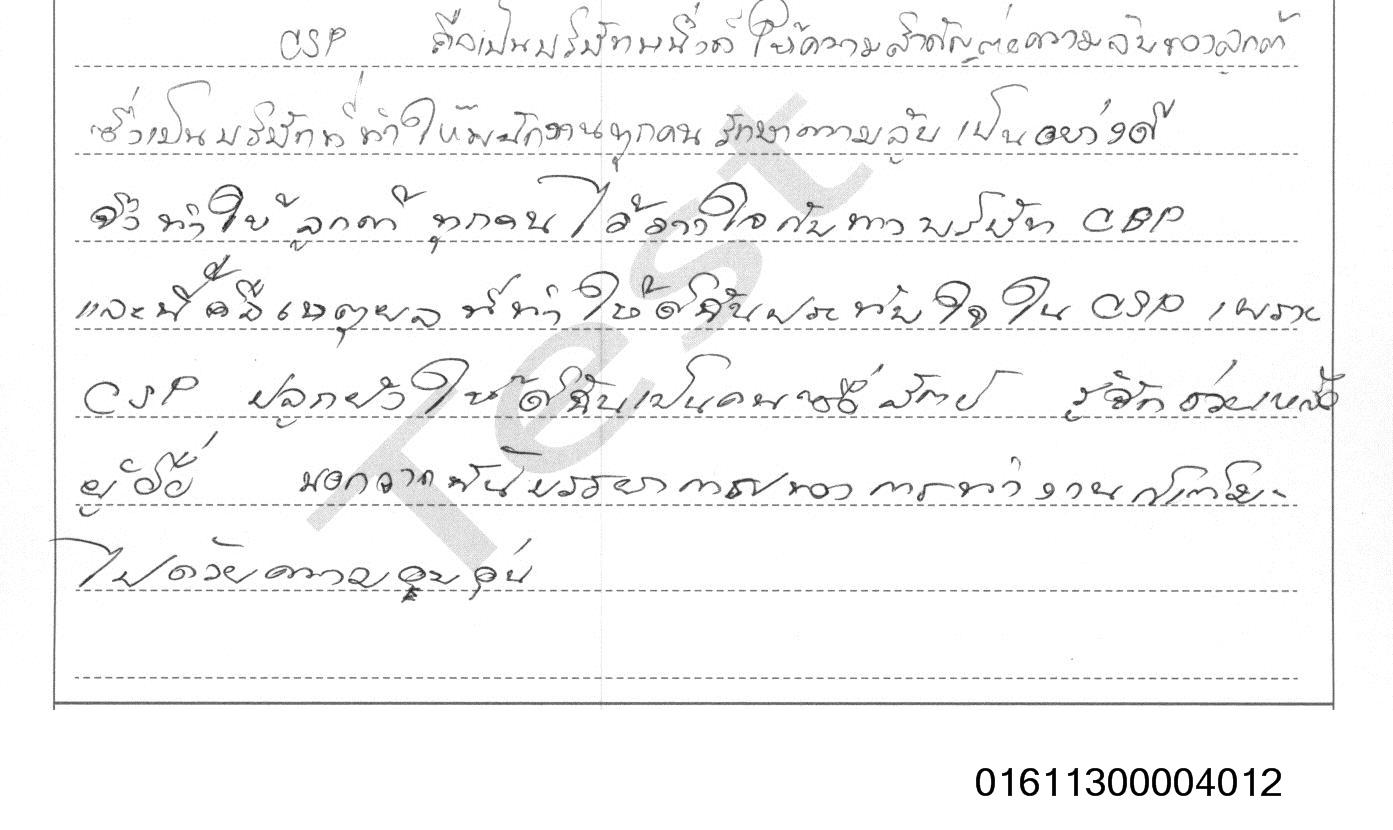 CSP ถือเป็นบริษัทหนึ่งที่ให้ความสำคัญต่อความลับของลูกค้า
ซึ่งเป็นบริษัทที่ทำให้พนักงานทุกคนรักษาความลับเป็นอย่างดี
จึงทำให้ลูกค้าทุกคนไว้วางใจกับทางบริษัท CSP
และนี้คือเหตุผลที่ทำให้ดิฉันประทับใจใน CSP เพราะ
CSP ปลูกฝังให้ดิฉันเป็นคนซื่อสัตย์ รู้จักช่วยเหลือ
ผู้อื่น นอกจากนั้นบรรยากาศของการทำงาน
ไปด้วยความอบอุ่น
Test
01611300004012